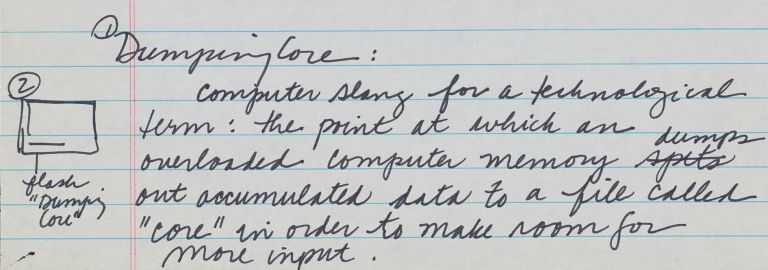 ① Dumping Core:
computer slang for a technological
term: the point at which an
overloaded computer memory ~~spits~~ dumps
out accumulated data to a file called
"core" in order to make room for
more input.
②
flash
"Dumping
Core"